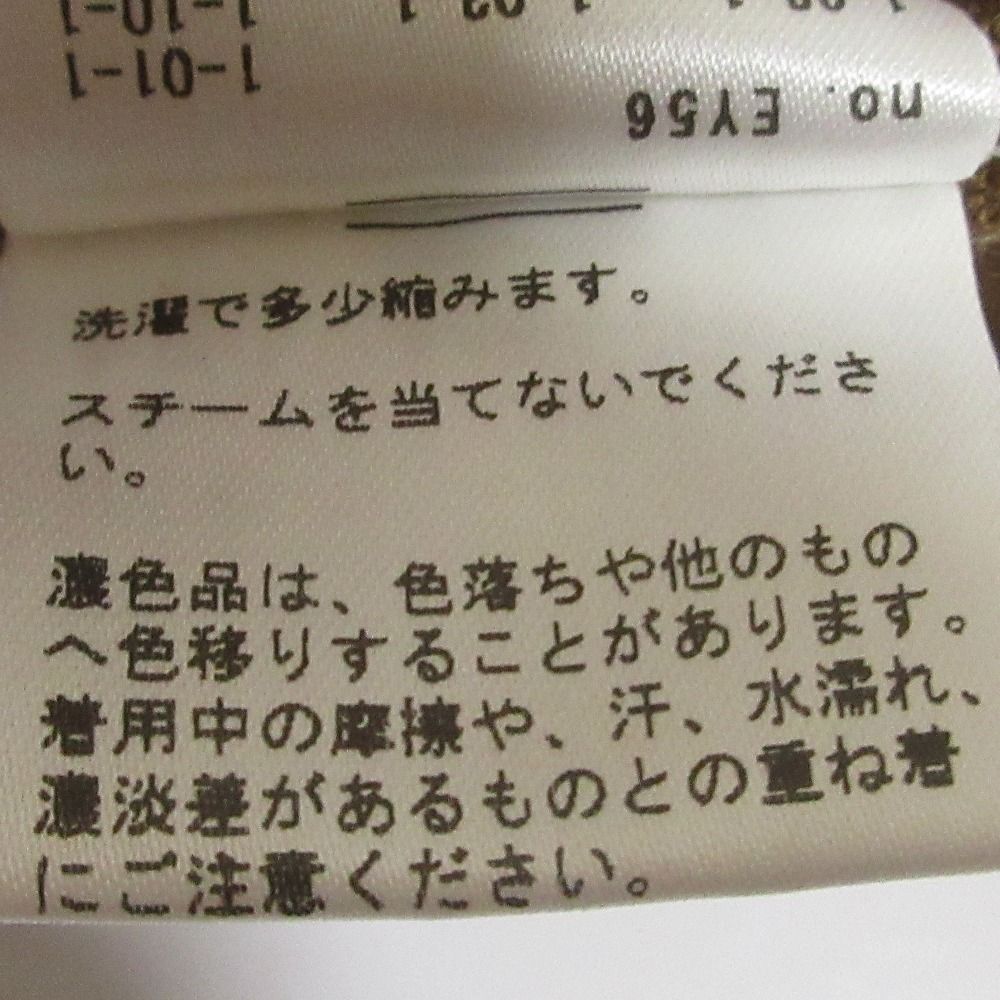 no. EY56
1-01-1
1-10-1
洗濯で多少縮みます。
スチームを当てないでくださ
い。
濃色品は、色落ちや他のもの
へ色移りすることがあります。
着用中の摩擦や、汗、水濡れ、
濃淡差があるものとの重ね着
にご注意ください。